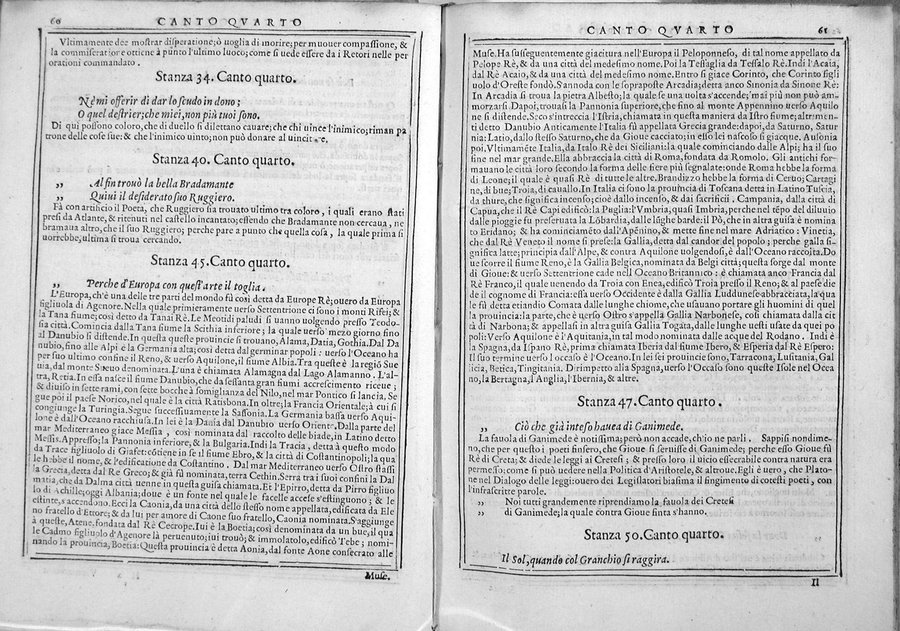 60 CANTO QVARTO
Vltimamente dee mostrar disperatione; ò uoglia di morire; per muouer compassione, &
la commiseratione ottiene à punto l'ultimo luoco; come si uede essere da i Retori nelle per
orationi commandato.
Stanza 34. Canto quarto.
Nè mi offerir di dar lo scudo in dono;
O quel destrier; che miei, non più tuoi sono.
Di qui possono coloro, che di duello si dilettano cauare; che chi uince l'inimico; riman pa
trone delle cose sue: & che l'inimico uinto, non può donare al uincitore,
Stanza 40. Canto quarto.
„ Al fin trouò la bella Bradamante
„ Quiui il desiderato suo Ruggiero.
Fà con artificio il Poeta, che Ruggiero sia trouato ultimo tra coloro, i quali erano stati
presi da Atlante, & ritenuti nel castello incantato; effendo che Bradamante non cercaua, ne
bramaua altro, che il suo Ruggiero; perche pare a punto che quella cosa, la quale prima si
uorrebbe, ultima si troua cercando.
Stanza 45. Canto quarto.
„ Perche d'Europa con quest'arte il toglia.
L'Europa, ch'è una delle tre parti del mondo fù così detta da Europe Rè; ouero da Europa
figliuola di Agenore. Nella quale primieramente uerso Settentrione ci sono i monti Rifei; &
la Tana fiume; così detto da Tanai Rè. Le Meotidi paludi si uanno uolgendo presso Teodo-
sia città. Comincia dalla Tana fiume la Scithia inferiore; la quale uerso mezo giorno fino
al Danubio si distende. In questa queste prouincie si trouano, Alama, Datia, Gothia. Dal Da
nubio, fino alle Alpi è la Germania alta; così detta dal germinar popoli: uerso l'Oceano ha
per suo ultimo confine il Reno, & uerso Aquilone, il fiume Albia. Tra queste è la regiõ Sue
uia, dal monte Sueuo denominata. L'una è chiamata Alamagna dal Lago Alamanno. L'al-
tra, Retia. In essa nasce il fiume Danubio, che da sessanta gran fiumi accrescimento riceue;
& diuiso in sette rami, con sette bocche à somiglianza del Nilo, nel mar Pontico si lancia. Se
gue poi il paese Norico, nel quale è la città Ratisbona. In oltre; la Francia Orientale; à cui si
congiunge la Turingia. Segue successiuamente la Sassonia. La Germania bassa uerso Aqui-
lone è dall'Oceano racchiusa. In lei è la Dania dal Danubio uerso Oriente. Dalla parte del
mar Mediterraneo giace Messia, così nominata dal raccolto delle biade, in Latino detto
Messis. Appresso; la Pannonia inferiore, & la Bulgaria. Indi la Tracia, detta à questo modo
da Trace figliuolo di Giafet: cõtiene in se il fiume Ebro, & la città di Costantinopoli; la qua
le hebbe il nome, & l'edificatione da Costantino. Dal mar Mediterraneo uerso Ostro stassi
la Grecia, detta dal Re Greco; & già fù nominata, terra Cethin. Serra tra i suoi confini la Dal
matia, che da Dalma città uenne in questa guisa chiamata. Et l'Epiro, detta da Pirro figliuo
lo di Achille; oggi Albania; doue è un fonte nel quale le facelle accese s'estinguono; & le
estinte, s'accendono. Ecci la Caonia, da una città dello stesso nome appellata, edificata da Ele
no fratello d'Ettore; & da lui per amore di Caone suo fratello, Caonia nominata. S'aggiunge
à queste, Atene, fondata dal Rè Cecrope. Iui è la Boetia; così denominata da un bue, il qua
le Cadmo figliuolo d'Agenore là peruenuto; iui trouò; & immolatolo, edificò Tebe; nomi-
nando la prouincia, Boetia: Questa prouincia è detta Aonia, dal fonte Aone consecrato alle
Muse.
CANTO QVARTO 61
Muse. Ha susseguentemente giacitura nell'Europa il Peloponneso, di tal nome appellato da
Pelope Rè, & da una città del medesimo nome. Poi la Tessaglia da Tessalo Rè. Indi l'Acaia,
dal Rè Acaio, & da una città del medesimo nome. Entro si giace Corinto, che Corinto figli
uolo d'Oreste fondò. S'annoda con le sopraposte Arcadia; detta anco Sinonia da Sinone Rè:
In Arcadia si troua la pietra Albesto; la quale se una uolta s'accende; mai più non può am-
morzarsi. Dapoi, trouasi la Pannonia superiore, che fino al monte Appennino uerso Aquilo
ne si distende. Seco s'intreccia l'Istria, chiamata in questa maniera da Istro fiume; altrimen-
ti detto Danubio Anticamente l'Italia sù appellata Grecia grande: dapoi, da Saturno, Satur
nia: Latio, dallo stesso Saturno, che da Gioue cacciato; in esso lei nascoso si giacque. Ausonia
poi. Vltimamẽte Italia, da Italo Rè dei Siciliani: la quale cominciando dalle Alpi; ha il suo
fine nel mar grande. Ella abbraccia la città di Roma, fondata da Romolo. Gli antichi for-
mauano le città loro secondo la forma delle fiere più segnalate: onde Roma hebbe la forma
di Leone; il quale è quasi Rè di tutte le altre. Brandizzo hebbe la forma di Ceruo; Cartagi
ne, di bue; Troia, di cauallo. In Italia ci sono la prouincia di Toscana detta in Latino Tuscia,
da thure, che significa incenso; cioè dallo incenso, & dai sacrificii. Campania, dalla città di
Capua, che il Rè Capi edificò: la Puglia: l'Vmbria, quasi Imbria, perche nel tẽpo del diluuio
dalle pioggie fu preseruata la Lõbardia, dalle lõghe barde: il Pò, che in altra guisa è nomina
to Eridano; & ha cominciamẽto dall'Apẽnino, & mette fine nel mare Adriatico: Vinetia,
che dal Rè Veneto il nome si prese: la Gallia, detta dal candor del popolo; perche galla si-
gnifica latte; principia dall'Alpe, & contra Aquilone uolgendosi, è dall'Oceano raccolta. Do
ue scorre il fiume Reno, è la Gallia Belgica, nominata da Belgi città; questa sorge dal monte
di Gioue: & uerso Settentrione cade nell'Oceano Britannico: è chiamata anco Francia dal
Rè Franco, il quale uenendo da Troia con Enea, edificò Troia presso il Reno; & al paese die
de il cognome di Francia: essa uerso Occidente è dalla Gallia Luddunese abbracciata, la qua
le fù detta etiandio Comata dalle lunghe chiome, che usauano portare gli huomini di quel
la prouincia: la parte, che è uerso Ostro s'appella Gallia Narbonese, così chiamata dalla cit
tà di Narbona; & appellasi in altra guisa Gallia Togata, dalle lunghe uesti usate da quei po
poli: Verso Aquilone è l'Aquitania, in tal modo nominata dalle acque del Rodano. Indi è
la Spagna, da Ispano Rè, prima chiamata Iberia dal fiume Ibero, & Esperia dal Rè Espero:
Il suo termine uerso l'occaso è l'Oceano. In lei sei prouincie sono, Tarracona, Lusitania, Gal
licia, Betica, Tingitania. Dirimpetto alla Spagna, uerso l'Occaso sono queste Isole nel Ocea
no, la Bertagna, l'Anglia, l'Ibernia, & altre.
Stanza 47. Canto quarto.
„ Ciò che già inteso hauea di Ganimede.
La fauola di Ganimede è notissima; però non accade, ch'io ne parli. Sappisi nondime-
no, che per questo i poeti finsero, che Gioue si seruisse di Ganimede; perche esso Gioue fù
Rè di Creta; & diede le leggi ai Cretesi; & presso loro il uicio essecrabile contra natura era
permesso: come si può uedere nella Politica d'Aristotele, & altroue. Egli è uero, che Plato-
ne nel Dialogo delle leggi: ouero dei Legislatori biasima il fingimento di cotesti poeti, con
l'infrascritte parole.
„ Noi tutti grandemente riprendiamo la fauola dei Cretesi
„ di Ganimede; la quale contra Gioue finta s'hanno.
Stanza 50. Canto quarto.
Il Sol, quando col Granchio si raggira.
II